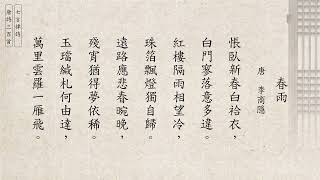 春雨
唐 李商隱
悵臥新春白袷衣，
白門寥落意多違。
紅樓隔雨相望冷，
珠箔飄燈獨自歸。
遠路應悲春晼晚，
殘宵猶得夢依稀。
玉璫緘札何由達，
萬里雲羅一雁飛。
七言律詩
唐詩三百首